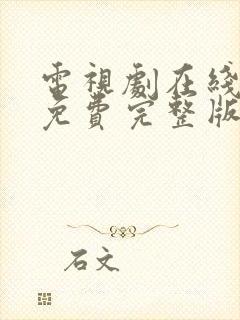 電視劇在綫
免費完整版
石文